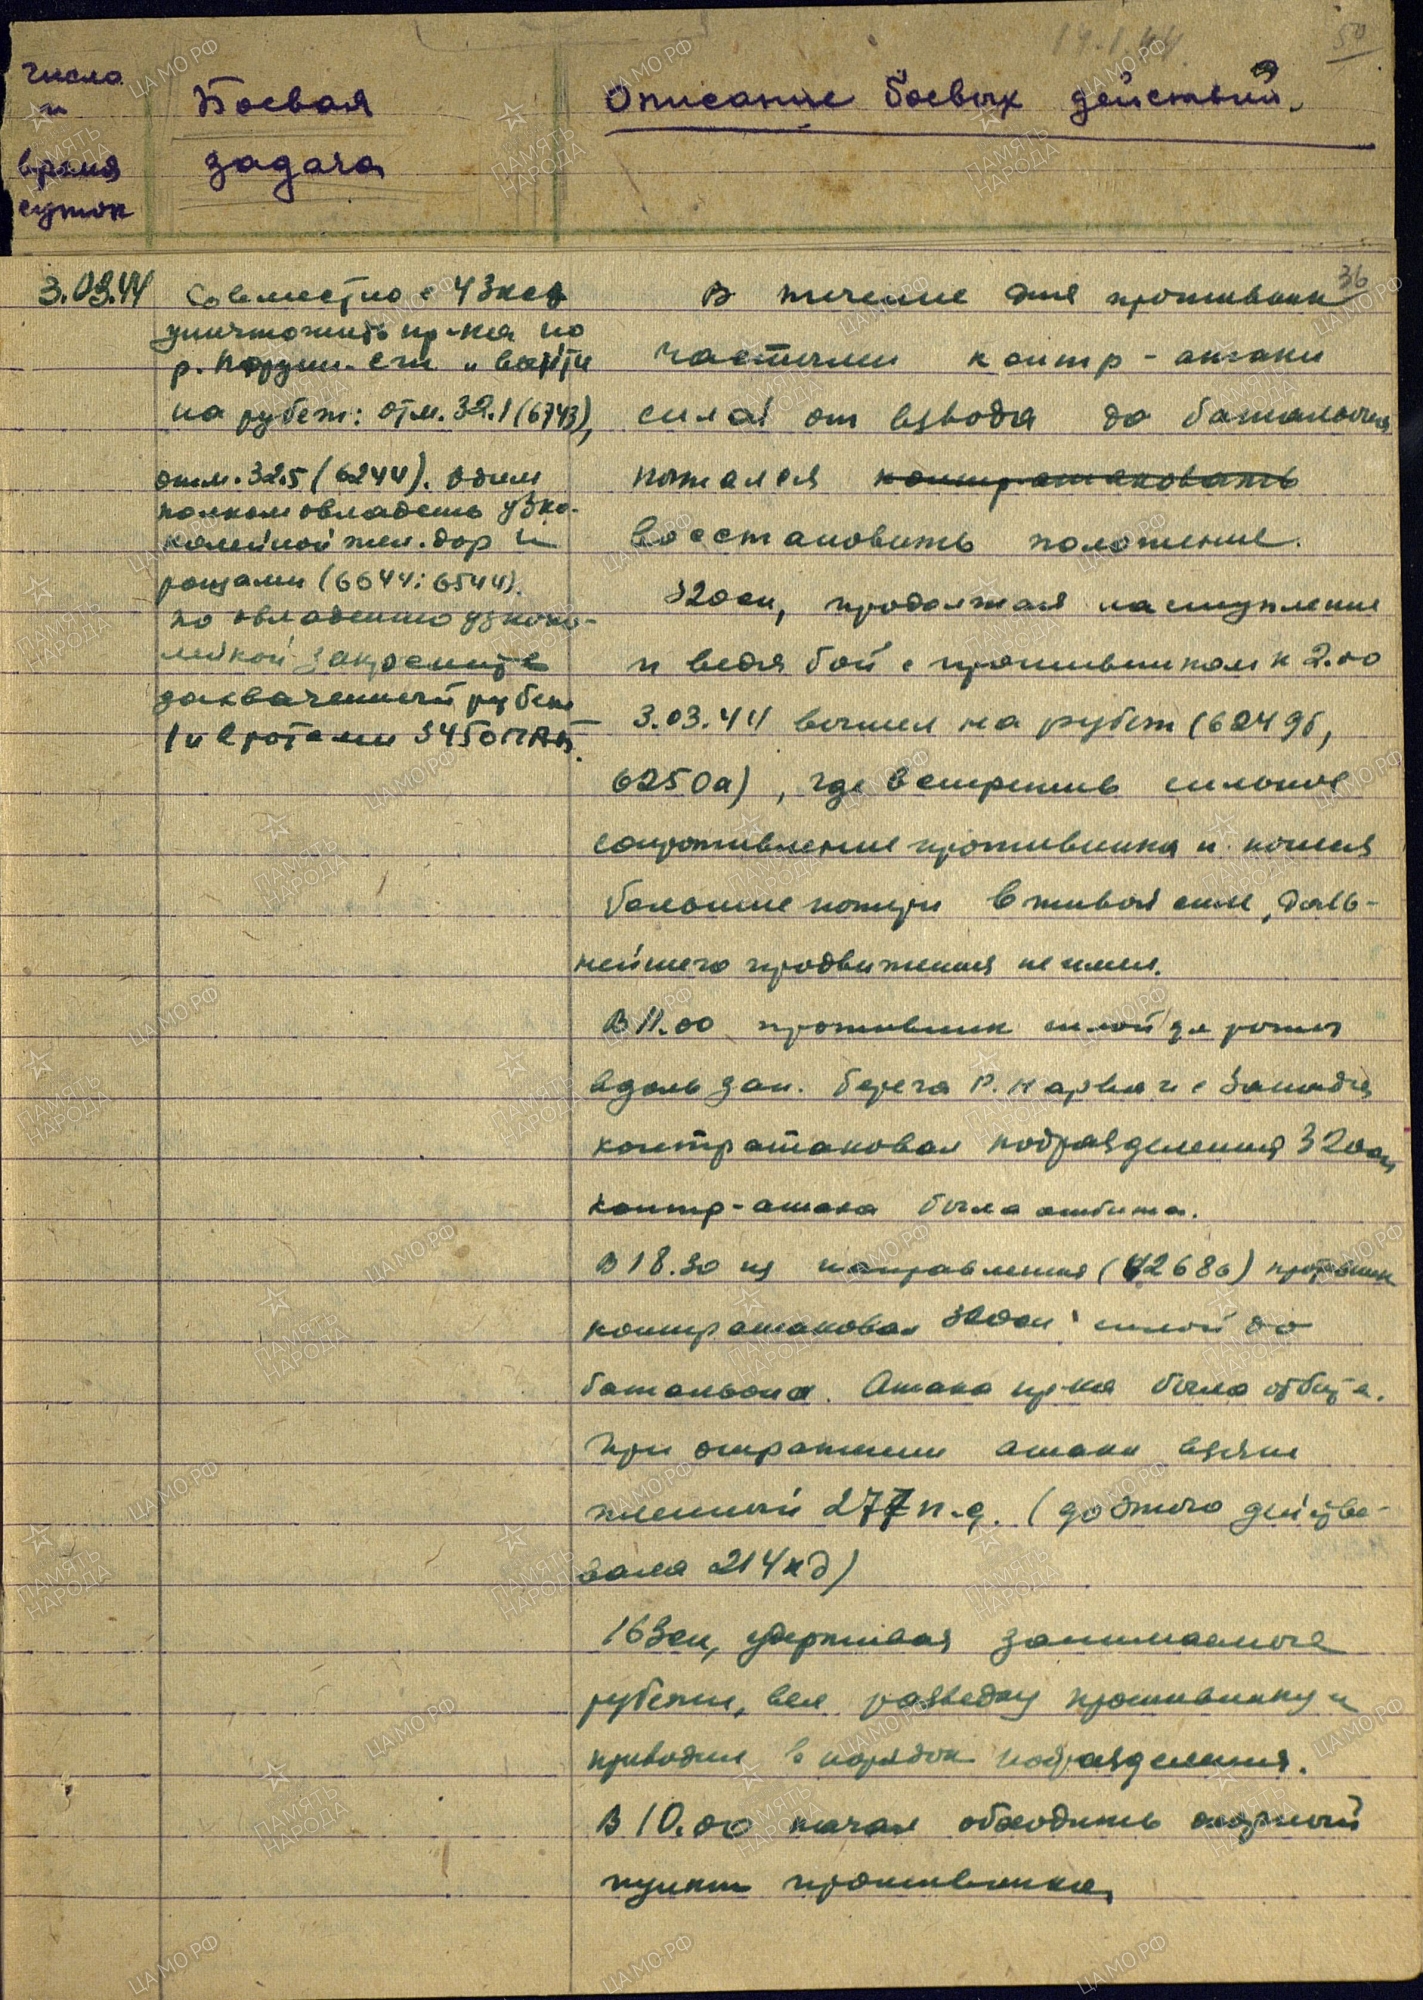 19.1.44
50
Число
и
время
суток
Боевая
задача
Описание боевых действий.
36
3.03.44
Совместно с 43кса
уничтожить пр-ка по
и выйти
на рубеж: отм. 32.1 (6743),
отм. 32.5 (6244). Одним
полком овладеть узко-
колейной жел. дор и
рощами (6644; 6544).
по овладению узкоко-
лейкой закрепить
захваченный рубеж
ротами 345
В течение дня противник
частыми контр-атаки
силой от взвода до батальона
пытался контратаковать
восстановить положение.
320сп, продолжая наступление
и ведя бой с противником к 2.00
3.03.44 вышел на рубеж (6249б,
6250а), где встретив сильное
сопротивление противника и понеся
большие потери в живой силе, даль-
нейшего продвижения не имел.
В 11.00 противник силой до роты
вдоль зап. берега р. Нарва и с Запада
контратаковал подразделения 320сп
контр-атака была отбита.
В 18.30 из направления (4268б) противник
контратаковал 320сп силой до
батальона. Атака пр-ка была отбита.
при отражении атаки взяли
пленный 277 п.д. (до этого действо-
вала 214пд)
163сп, удерживая занимаемые
рубежи, вел разведку противнику и
приводил в порядок подразделения.
В 10.00 начал обходить опорный
пункт противника,
ЦАМО РФ
ПАМЯТЬ
НАРОДА